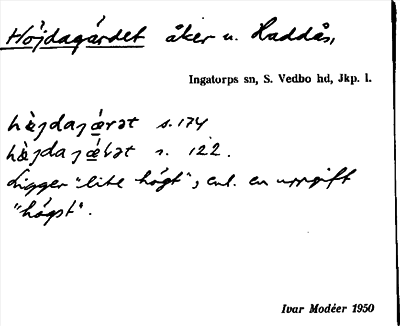 Höjdagärdet åker u. Haddås,
Ingatorps sn, S. Vedbo hd, Jkp. l.
s. 174
s. 122.
Ligger "lite högt", enl. en uppgift
"högst".
Ivar Modéer 1950